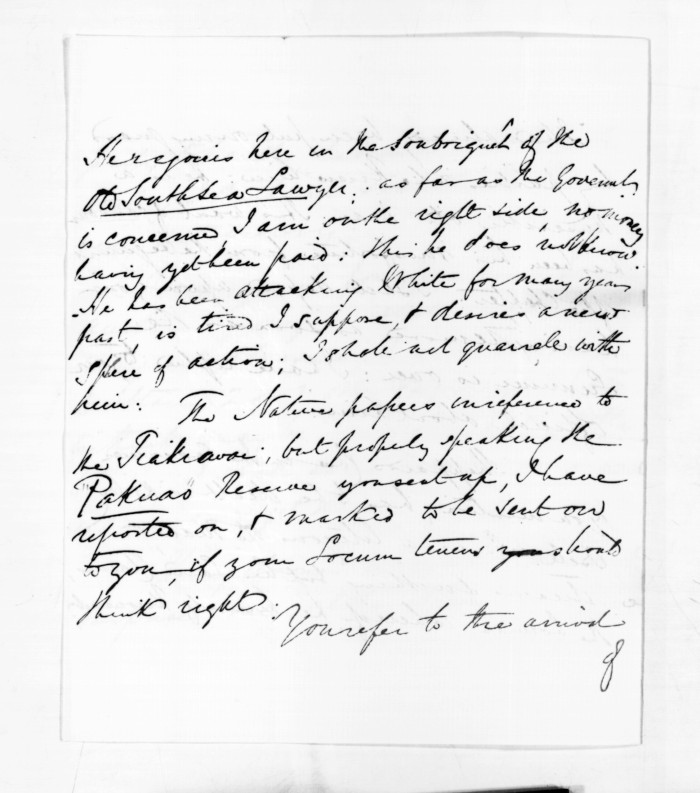 He rejoices here in the Soubriquet of the
Old South Sea Lawyer. as far as the Governmt
is concerned, I am on the right side, no money
having yet been paid: this he does not know.
He has been attacking White for many years
past, is tired I suppose, & desires a new
sphere of action; I shall not quarrel with
him. The Native papers in reference to
the Tiakiawai; but properly speaking the
"Pakuao" Reserve you sent up, I have
reported on, & marked to be sent on
to you, if your Locum tenens you should
think right.
You refer to the arrival
of